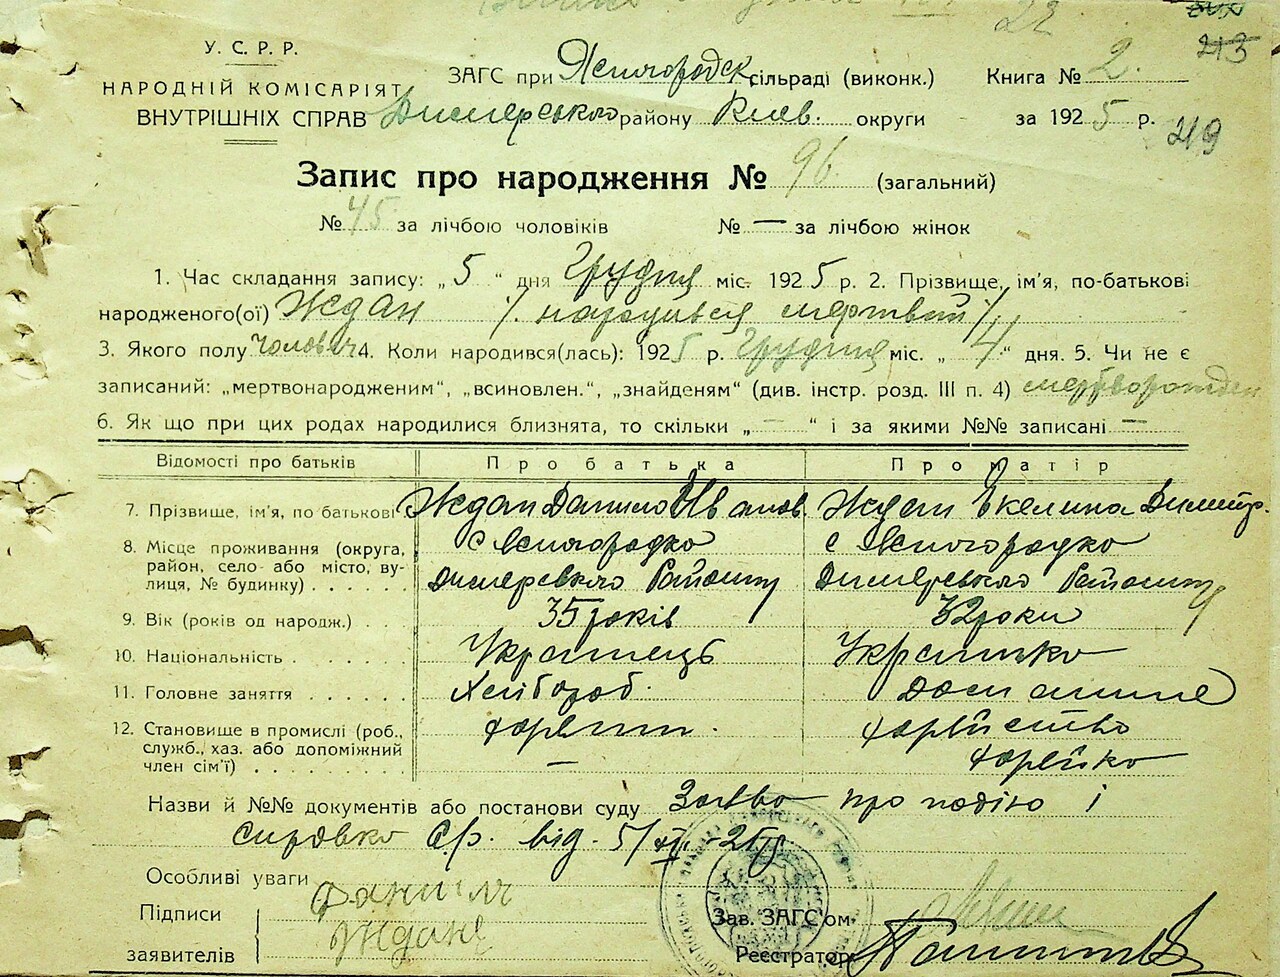 22
213
У. С. Р. Р.
НАРОДНІЙ КОМІСАРІЯТ
ВНУТРІШНІХ СПРАВ
ЗАГС при Ясногородск. сільраді (виконк.) Книга № 2
Димерського району Київ. округи за 1925 р.
219
Запис про народження № 96 (загальний)
№ 45 за лічбою чоловіків № — за лічбою жінок
1. Час складання запису: „5“ дня Грудня міс. 1925 р. 2. Прізвище, ім'я, по-батькові
народженого(ої) Ждан /. народився мертвий ./
3. Якого полу чоловіч 4. Коли народився(лась): 1925 р. Грудня міс. „4“ дня. 5. Чи не є
записаний: „мертвонародженим“, „всиновлен.“, „знайденям“ (див. інстр. розд. III п. 4)
6. Як що при цих родах народилися близнята, то скільки „—“ і за якими №№ записані —
Відомості про батьків Про батька Про матір
7. Прізвище, ім'я, по батькові Ждан Данило Іванов. Ждан Димитр.
8. Місце проживання (округа, с Ясногородка с Ясногородка
район, село або місто, ву-
лиця, № будинку) . . . . . . Димерського Району Димерського Району
9. Вік (років од народж.) . . 35 років 32 роки
10. Національність . . . . . . Українець Українка
11. Головне заняття . . . . . Хлібороб. Домашнє
12. Становище в промислі (роб.,
служб., хаз. або допоміжний
член сім'ї) . . . . . . . . . —
Назви й №№ документів або постанови суду Заява про подію і
справка С/р. від. 5/XII-25р
Особливі уваги
Підписи Данило
заявителів Ждан
Зав. ЗАГС'ом
Реєстратор